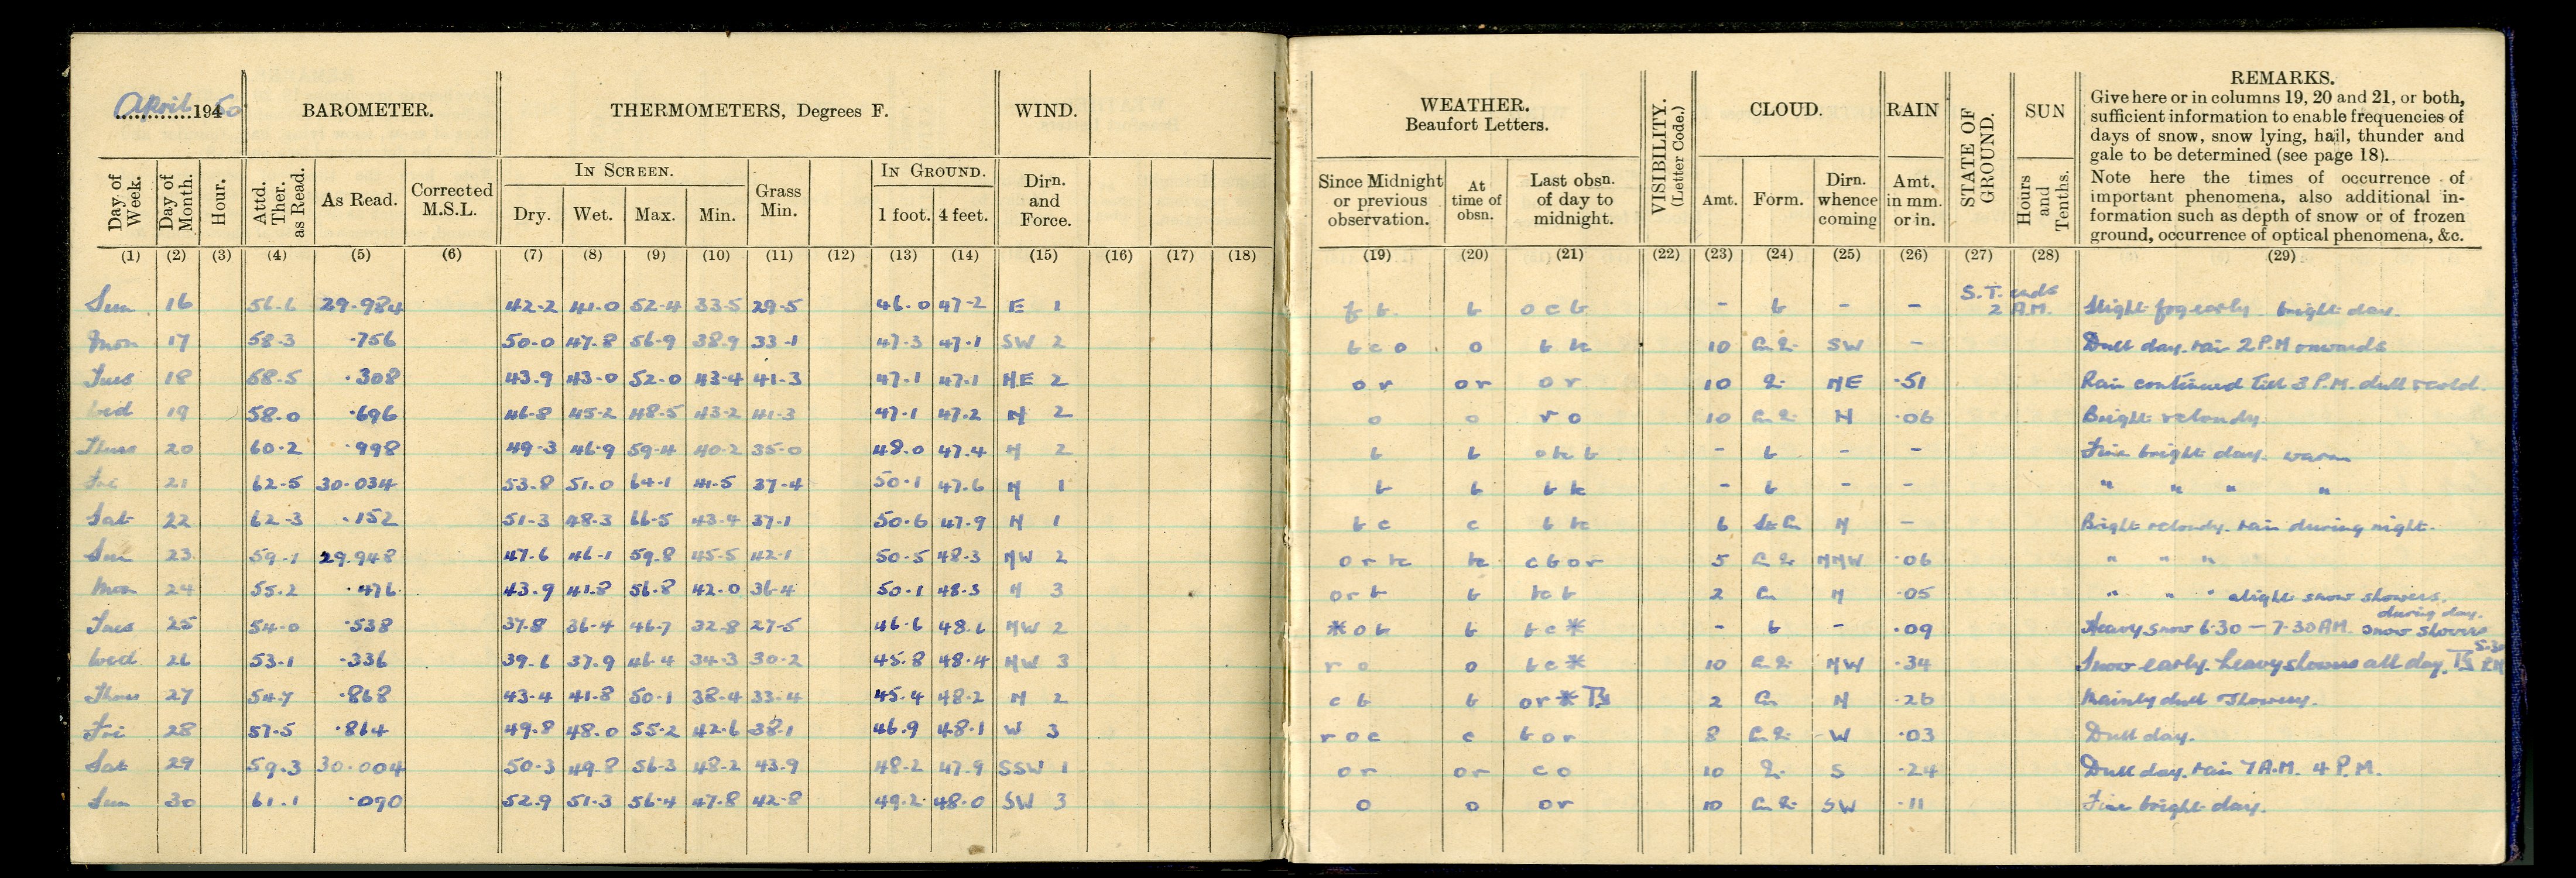 April 1950
BAROMETER.
THERMOMETERS, Degrees F.
WIND.
Day of Week.
Day of Month.
Hour.
Attd. Ther. as Read.
As Read.
Corrected M.S.L.
IN SCREEN.
Dry. Wet. Max. Min.
Grass Min.
IN GROUND.
1 foot. 4 feet.
Dirn. and Force.
(1) (2) (3) (4) (5) (6) (7) (8) (9) (10) (11) (12) (13) (14) (15) (16) (17) (18)
Sun 16 56.6 29.984 42.2 41.0 52.4 33.5 29.5 46.0 47.2 E 1
Mon 17 58.3 .756 50.0 47.8 56.9 38.9 33.1 47.3 47.1 SW 2
Tues 18 58.5 .308 43.9 43.0 52.0 43.4 41.3 47.1 47.1 NE 2
Wed 19 58.0 .696 46.8 45.2 48.5 43.2 41.3 47.1 47.2 N 2
Thurs 20 60.2 .998 49.3 46.9 59.4 40.2 35.0 48.0 47.4 N 2
Fri 21 62.5 30.034 53.8 51.0 64.1 41.5 37.4 50.1 47.6 N 1
Sat 22 62.3 .152 51.3 48.3 66.5 43.4 37.1 50.6 47.9 N 1
Sun 23 59.1 29.948 47.6 46.1 59.8 45.5 42.1 50.5 48.3 NW 2
Mon 24 55.2 .476 43.9 41.8 56.8 42.0 36.4 50.1 48.5 N 3
Tues 25 54.0 .538 37.8 36.4 46.7 32.8 27.5 46.6 48.6 NW 2
Wed 26 53.1 .336 39.6 37.9 46.4 34.3 30.2 45.8 48.4 NW 3
Thurs 27 54.7 .868 43.4 41.8 50.1 38.4 33.4 45.4 48.2 N 2
Fri 28 57.5 .864 49.8 48.0 55.2 42.6 38.1 46.9 48.1 W 3
Sat 29 59.3 30.004 50.3 49.8 56.3 48.2 43.9 48.2 47.9 SSW 1
Sun 30 61.1 .090 52.9 51.3 56.4 47.8 42.8 49.2 48.0 SW 3
WEATHER.
Beaufort Letters.
Since Midnight or previous observation.
At time of obsn.
Last obsn. of day to midnight.
VISIBILITY. (Letter Code.)
CLOUD.
Amt. Form.
Dirn. whence coming
RAIN
Amt. in mm. or in.
STATE OF GROUND.
SUN
Hours and Tenths.
REMARKS.
Give here or in columns 19, 20 and 21, or both,
sufficient information to enable frequencies of
days of snow, snow lying, hail, thunder and
gale to be determined (see page 18).
Note here the times of occurrence of
important phenomena, also additional in-
formation such as depth of snow or of frozen
ground, occurrence of optical phenomena, &c.
(19) (20) (21) (22) (23) (24) (25) (26) (27) (28) (29)
f b b o c b - b - - S.T. ends 2 A.M. Slight fog early bright day.
b c o o 10 SW - Dull day. rain 2 P.M onwards
o r o r o r 10 NE .51 Rain continued till 3 P.M. dull & cold.
o o r o 10 N .06 Bright & cloudy
b b b - b - - Fine bright day. warm
b b - b - - " " " "
b c c 6 N - Bright & cloudy. rain during night.
c b o r 5 NNW .06 " " "
o r b b 2 Cu N .05 " " " slight snow showers.
* o b b b c * - b - .09 Heavy snow 6.30 - 7.30 AM. snow showers during day.
r o o b c * 10 NW .34 Snow early. heavy showers all day. 5.30 P.M
c b b o r * 2 Cu N .26 Mainly dull & showery.
r o c c b o r 8 W .03 Dull day.
o r o r c o 10 S .24 Dull day. rain 7 A.M. 4 P.M.
o o o r 10 SW .11 Fine bright day.